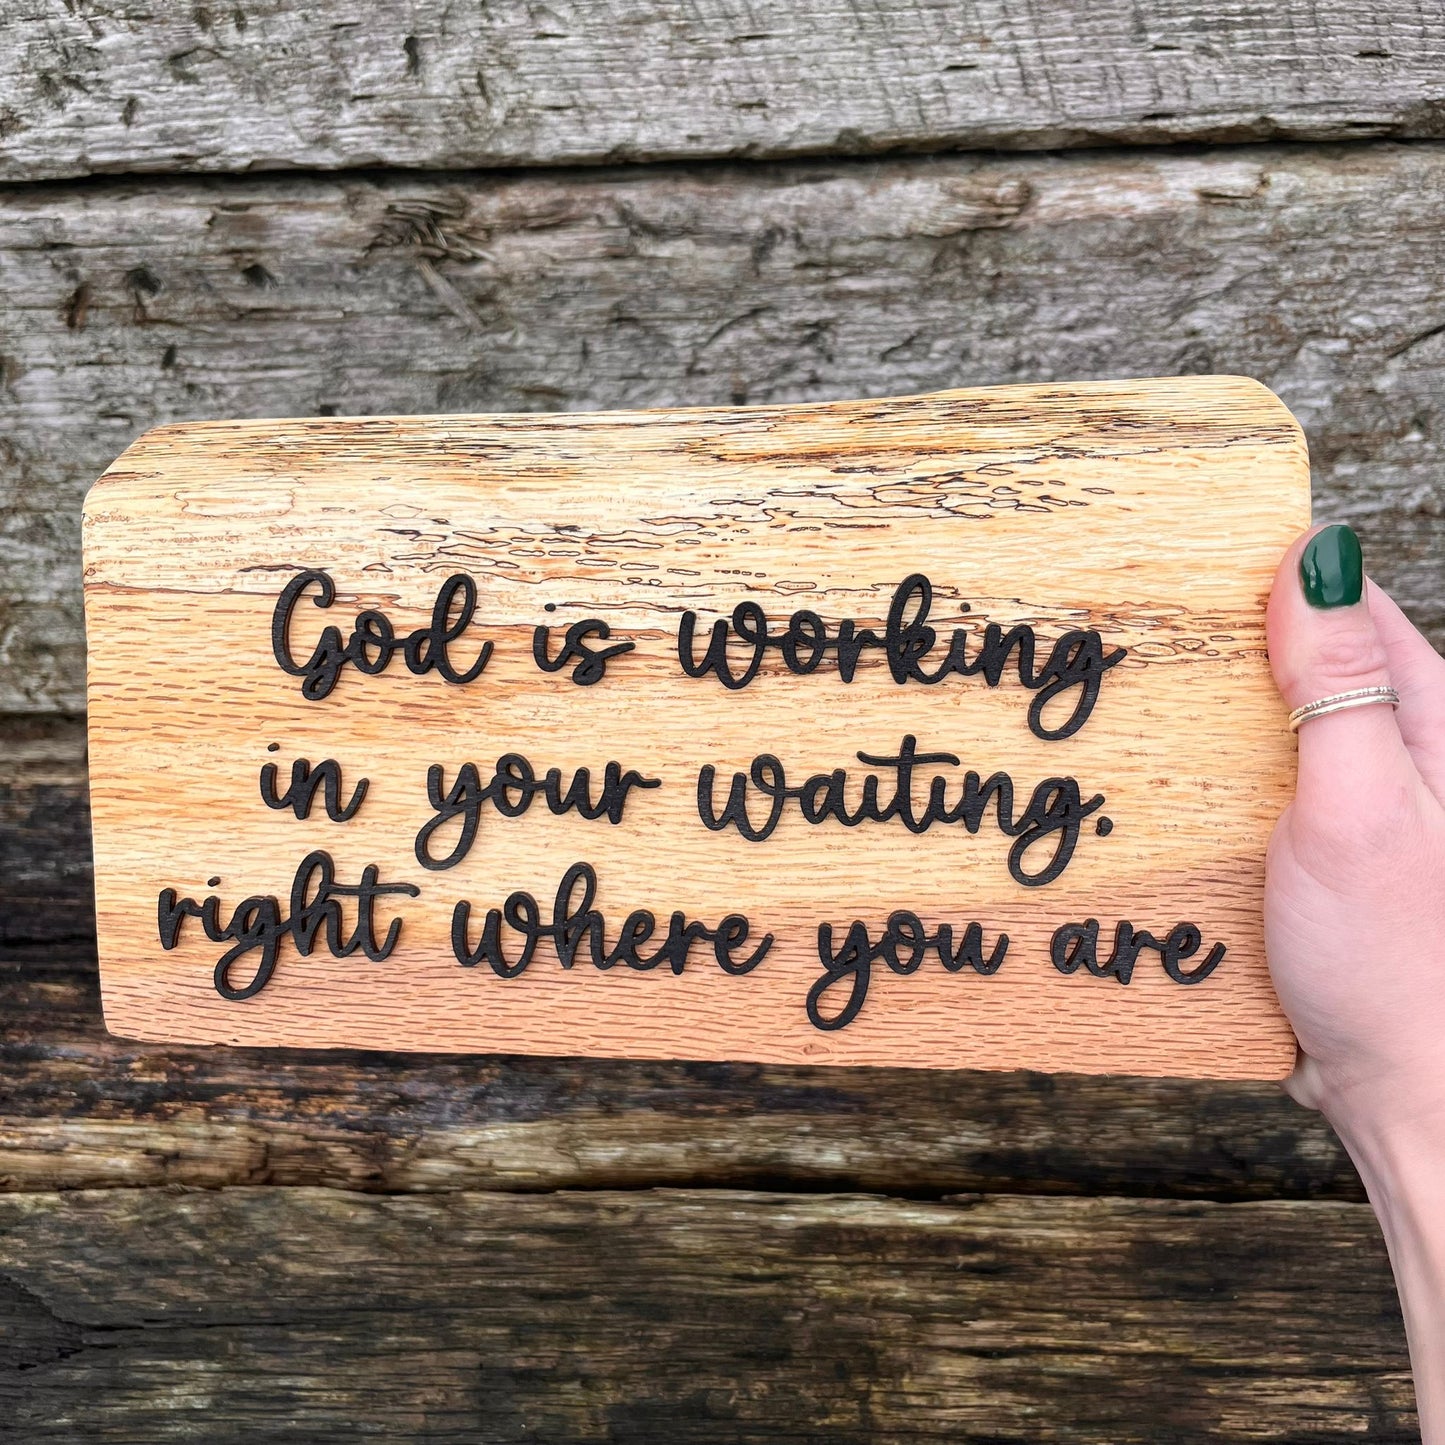 God is working
in your waiting.
right where you are